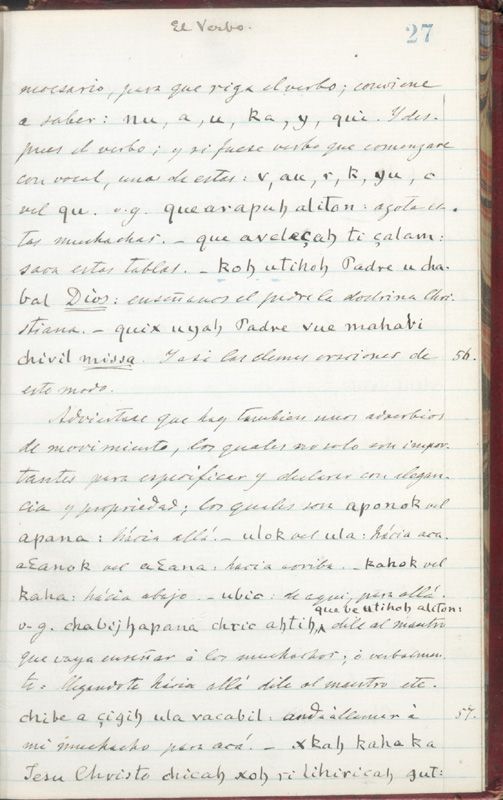 El Verbo.
27
necesario, para que riga el verbo; conviene
a saber: nu, a, u, ka, y, qui. Y des-
pues el verbo; y si fuese verbo que comenzare
con vocal, unos de estos: v, au, r, k, yu, c
vel qu. v.g. que arapuh aliton: azota es-
tos muchachos. – que aveleçah ti çalam:
saca estas tablas. – koh utihoh Padre u cha-
bal Dios: enseñanos el padre la doctrina Chri-
stiana. – quix uyah Padre vue mahabi
chivil missa. Y asi las demas oraciones de
56.
este modo.
Adviertase que hay tambien unos adverbios
de movimiento, los quales no solo son impor-
tantes para especificar y declarar con elegan-
cia y propriedad; los quales son aponok vel
apana: hácia allá. – ulok vel ula: hácia aca.
aƐanok vel aƐana: hacia arriba. – kahok vel
kaha: hácia abajo. – ubic: de aqui, para allá.
que be utihoh aliton:
v.g. chabij hapana chric ahtih, dile al maestro
que vaya enseñar á los muchachos; ó verbalmen-
te: llegandote hácia allá dile al maestro etc.
chibe a çiqih ula vacabil: anda á llamar á
57.
mi muchacho para acá. – xkah kaha ka
Jesu Christo chicah xoh ri lihiricah qut: